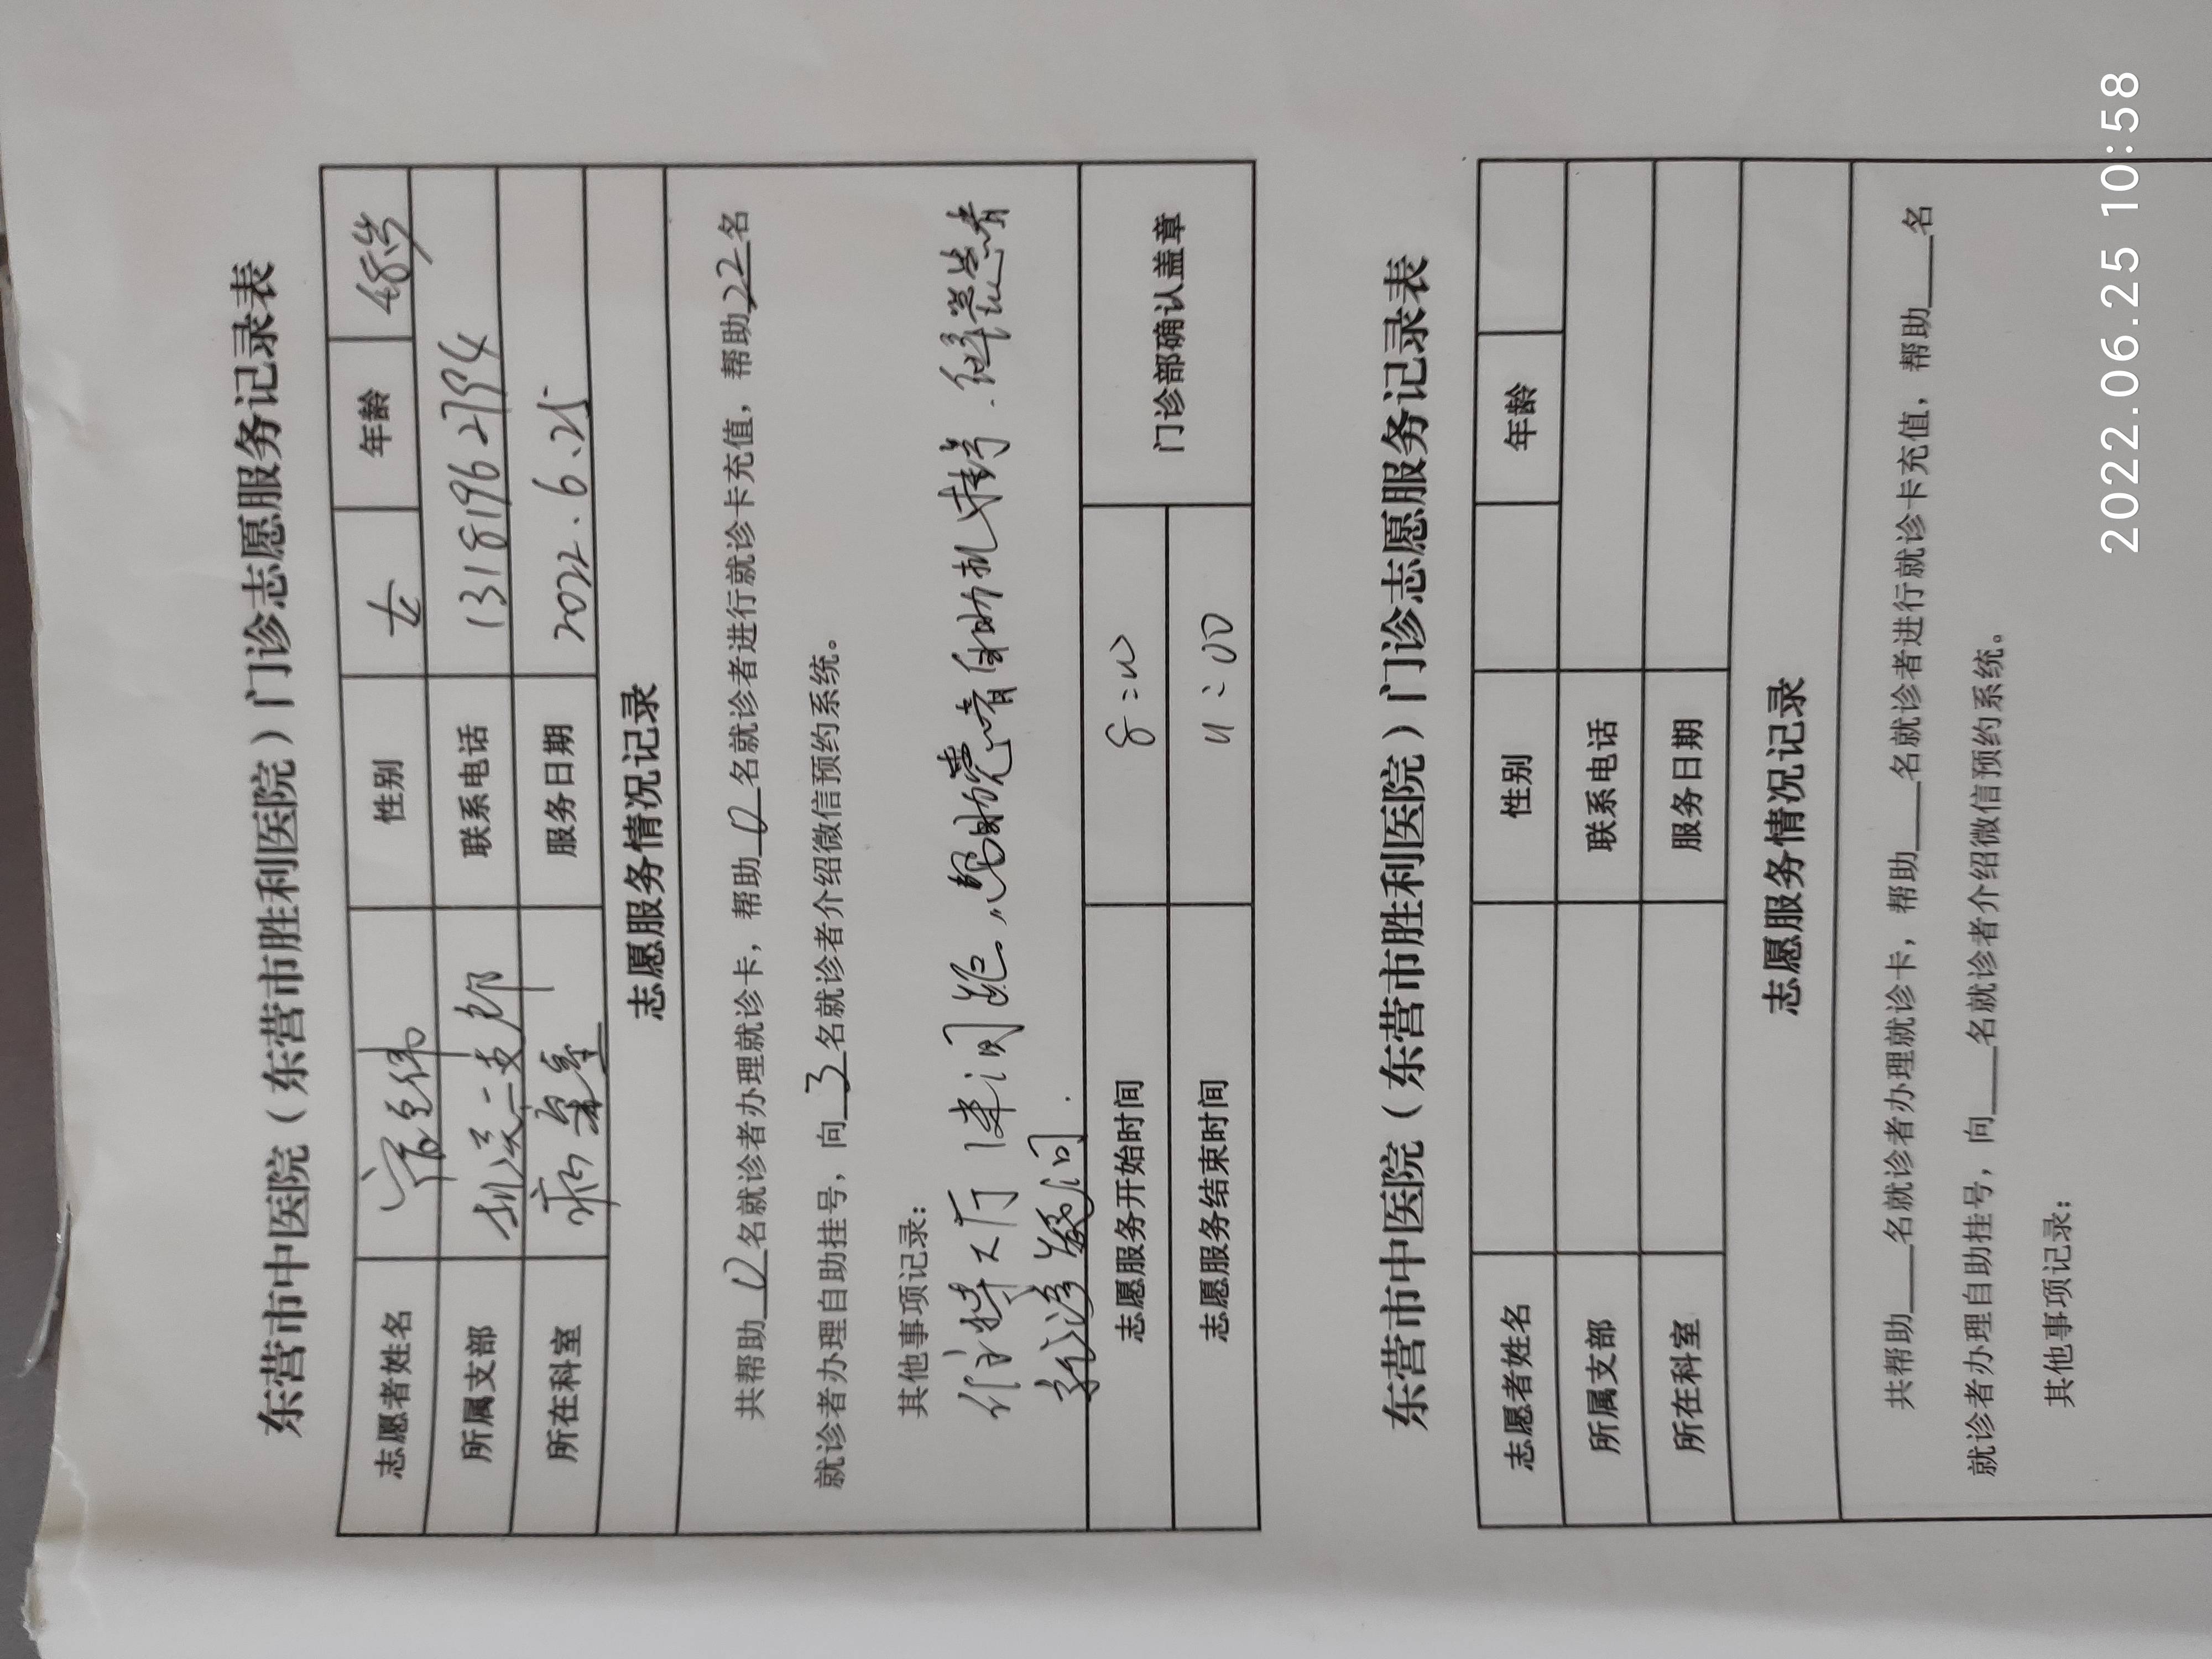 东营市中医院（东营市胜利医院）门诊志愿服务记录表
志愿者姓名 性别 女 年龄 48岁
所属支部 机关二支部 联系电话 13181962794
所在科室 病案室 服务日期 2022.6.25
志愿服务情况记录
共帮助 12 名就诊者办理就诊卡，帮助 12 名就诊者进行就诊卡充值，帮助 22 名
就诊者办理自助挂号，向 3 名就诊者介绍微信预约系统。
其他事项记录：
维持大厅 患者自助机挂号.
志愿服务开始时间 8:00 门诊部确认盖章
志愿服务结束时间 11:00
东营市中医院（东营市胜利医院）门诊志愿服务记录表
志愿者姓名 性别 年龄
所属支部 联系电话
所在科室 服务日期
志愿服务情况记录
共帮助___名就诊者办理就诊卡，帮助___名就诊者进行就诊卡充值，帮助___名
就诊者办理自助挂号，向___名就诊者介绍微信预约系统。
其他事项记录：
2022.06.25 10:58